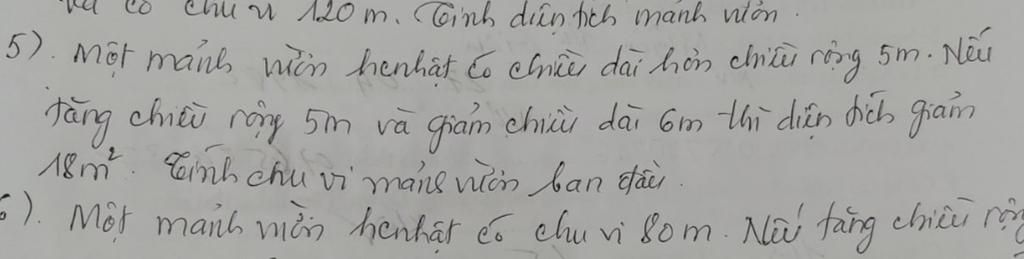 có chu vi 120m. Tính diện tích mảnh vườn.
5). Một mảnh vườn hcnhật có chiều dài hơn chiều rộng 5m. Nếu
tăng chiều rộng 5m và giảm chiều dài 6m thì diện tích giảm
18m². Tính chu vi mảnh vườn ban đầu.
6). Một mảnh vườn hcnhật có chu vi 80m. Nếu tăng chiều rộng